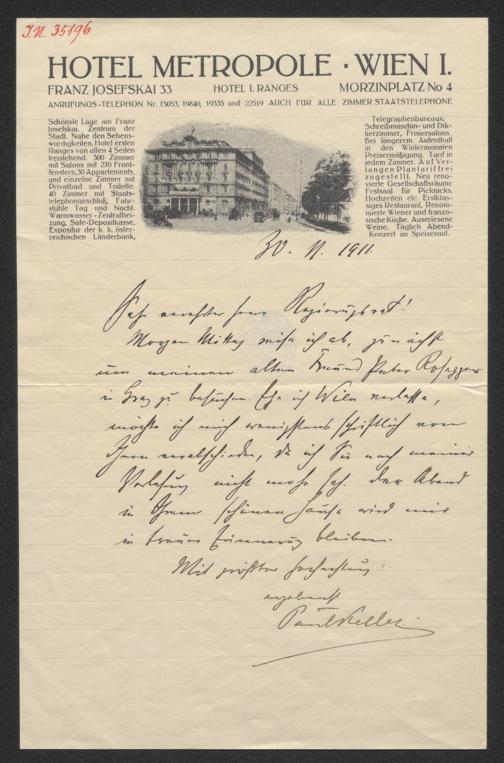 J.N. 35196
HOTEL METROPOLE · WIEN I.
FRANZ JOSEFSKAI 33 HOTEL I. RANGES MORZINPLATZ No 4
ANRUFUNGS-TELEPHON Nr. 15053, 19840, 19335 und 22519 AUCH FÜR ALLE ZIMMER STAATSTELEPHONE
Schönste Lage am Franz
Josefskai. Zentrum der
Stadt. Nahe den Sehens-
würdigkeiten. Hotel ersten
Ranges von allen 4 Seiten
freistehend. 300 Zimmer
mit Salons mit 270 Front-
fenstern, 30 Appartements,
und einzelne Zimmer mit
Privatbad und Toilette.
40 Zimmer mit Staats-
telephonanschluß, Fahr-
stühle Tag und Nacht.
Warmwasser-Zentralhei-
zung, Safe-Depotkasse,
Expositur der k. k. öster-
reichischen Länderbank,
Telegraphenbureaux,
Schreibmaschin- und Dik-
tierzimmer, Frisiersalons.
Bei längerem Aufenthalt
in den Wintermonaten
Preisermäßigung. Tarif in
jedem Zimmer. Auf Ver-
langen Plantarif frei
zugestellt. Neu reno-
vierte Gesellschaftsräume
Festsaal für Picknicks,
Hochzeiten etc. Erstklas-
siges Restaurant, Renom-
mierte Wiener und franzö-
sische Küche. Auserlesene
Weine. Täglich Abend-
Konzert im Speisesaal.
30. 11. 1911.
Sehr verehrter Herr Regierungsrat!
Morgen Mittag reise ich ab, zunächst
um meinen alten Freund Peter Rosegger
in Graz zu besuchen. Ehe ich Wien verlasse,
möchte ich mich wenigstens schriftlich von
Ihnen verabschieden, da ich Sie nach meiner
Vorlesung nicht mehr sah. Der Abend
in Ihrem schönen Hause wird mir
in treuer Erinnerung bleiben.
Mit größter Hochachtung
ergebenst
Paul Keller.